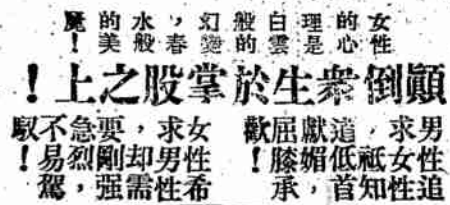 女性的心理是白雲般的幻變，春水般的美魔！
顚倒衆生於掌股之上！
男性追求女性，祗知道低首獻媚，屈膝承歡！
女性希求男性，却需要剛强急烈，不易駕馭！